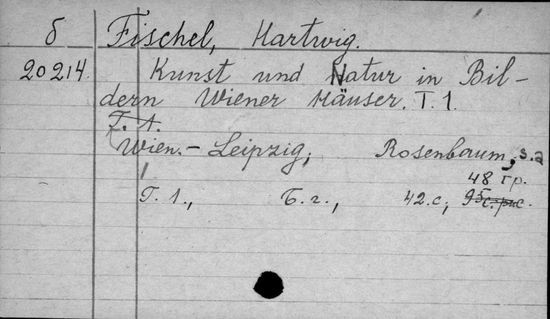 б Fischel, Hartwig.
20214. Kunst und Natur in Bil-
dern Wiener Häuser. T. 1.
T. 1.
Wien.- Leipzig, Rosenbaum, s.a
48 гр.
Т. 1., Б. г., 42.с, 95с. рис.